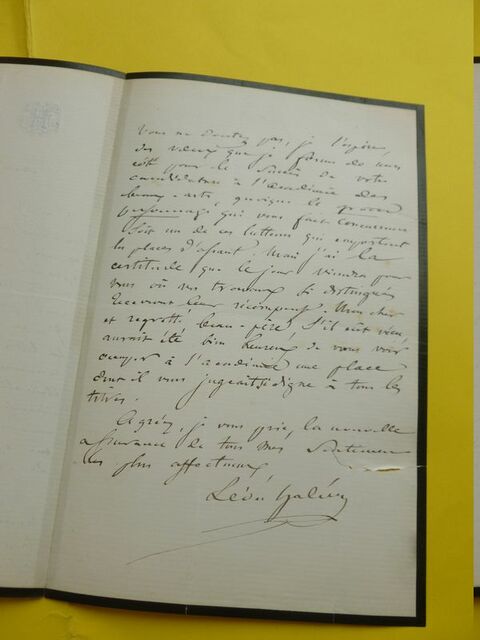 Vous ne doutez pas, je l'espère,
des vœux que je forme de mon
côté pour le succès de votre
candidature à l'académie des
beaux-arts, quoique le grand
personnage qui vous fait concurrence
soit un de ces lutteurs qui emportent
les places d'assaut. Mais j'ai la
certitude que le jour viendra pour
vous où vos travaux si distingués
recevront leur récompense. Mon cher
et regretté beau-père, s'il eût vécu,
aurait été bien heureux de vous voir
occuper à l'académie une place
dont il vous jugeait si digne à tous les
titres.
Agréez, je vous prie, la nouvelle
assurance de tous mes sentimens
les plus affectueux
Léon Halévy